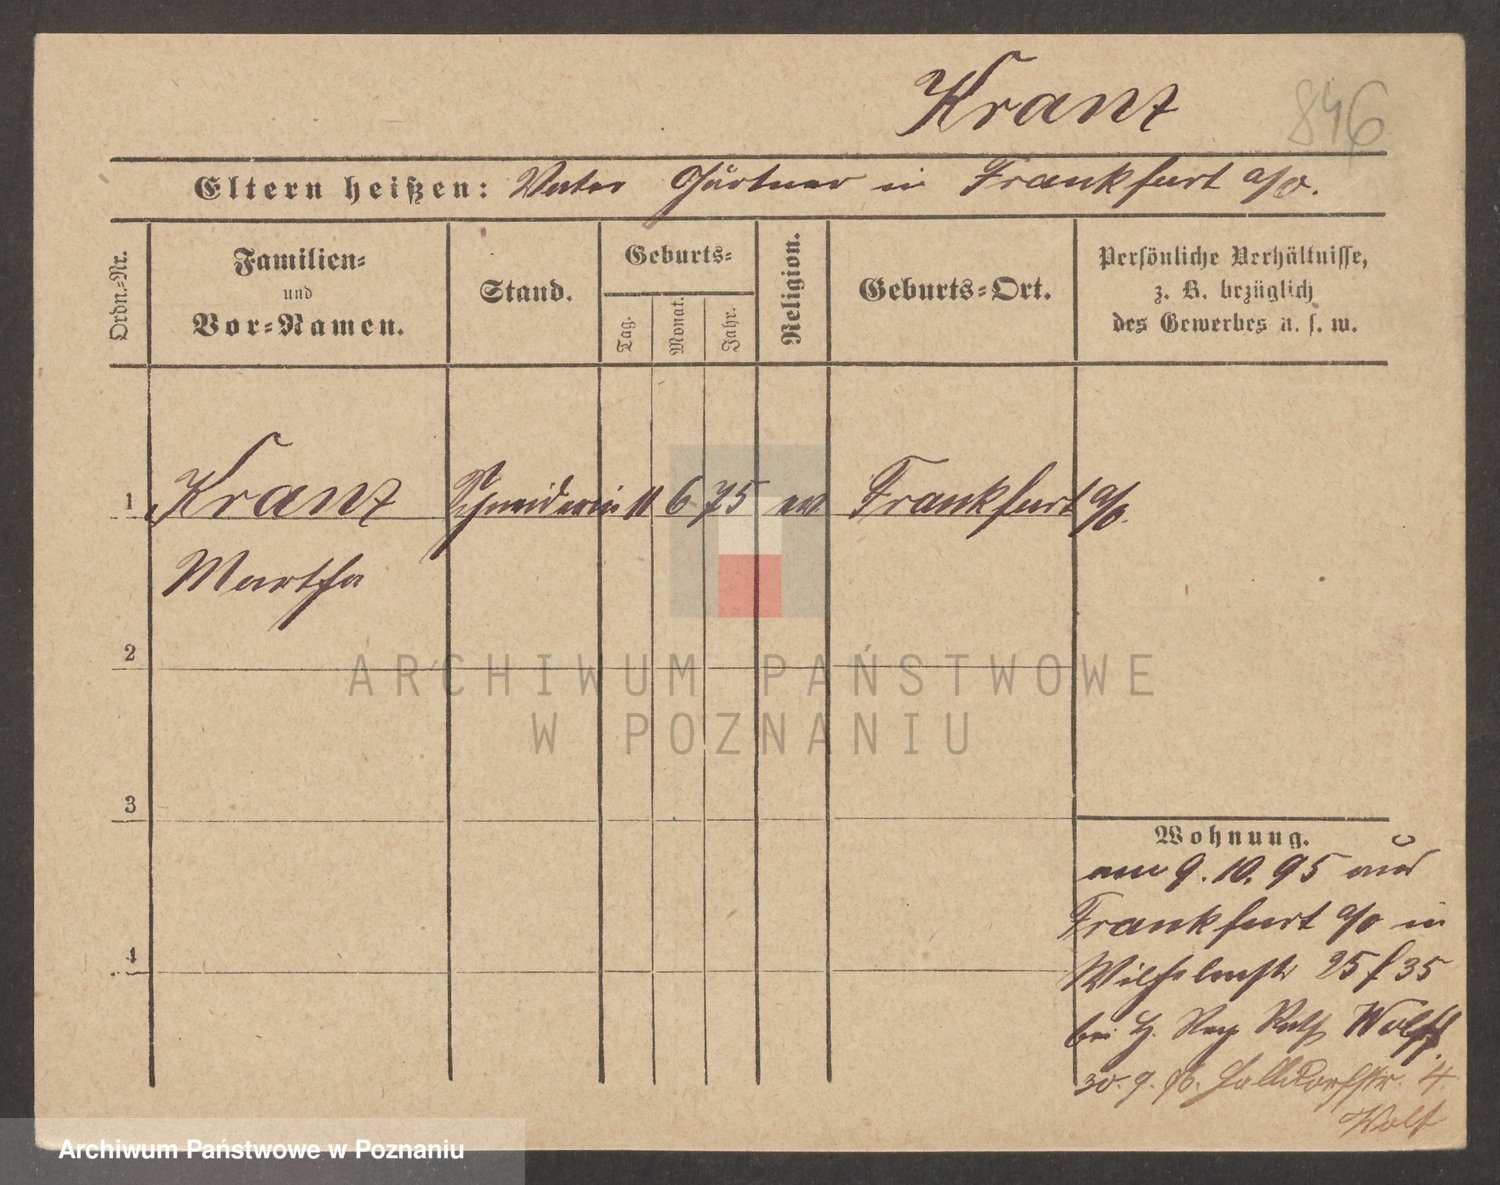 Kranz
846
Eltern heißen: Vater Gärtner in Frankfurt a/O.
Ordn.-Nr.
Familien-
und
Vor-Namen.
Stand.
Geburts-
Tag.
Monat.
Jahr.
Religion.
Geburts-Ort.
Persönliche Verhältnisse,
z. B. bezüglich
des Gewerbes u. s. w.
1 Kranz Schneiderin 11 6 75 ev Frankfurt a/O.
Martha
2
3
4
Wohnung.
am 9. 10. 95 aus
Frankfurt a/O in
Wilhelmstr 25 f 35
bei H. Reg Rath Wolff.
30. 9. 96. Halldorfstr. 4
Wolf
ARCHIWUM PAŃSTWOWE
W POZNANIU
Archiwum Państwowe w Poznaniu